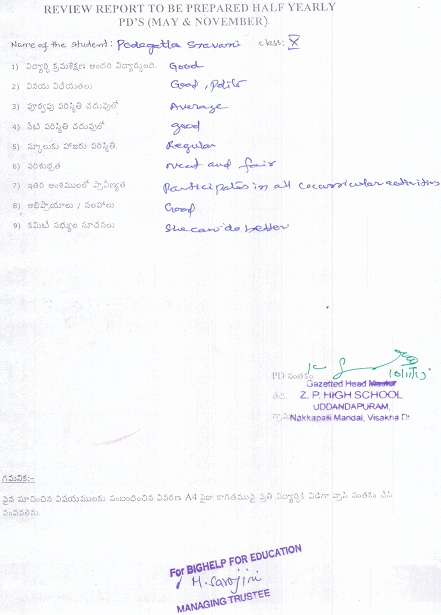 REVIEW REPORT TO BE PREPARED HALF YEARLY
PD'S (MAY & NOVEMBER)
Name of the student: Podagatla Sravani class: X
1) విద్యార్థి క్రమశిక్షణ అందరి విద్యార్థులల్లో. Good
2) వినయ విధేయతలు Good, Polite
3) పూర్వపు పరిస్థితి చదువులో Average
4) నేటి పరిస్థితి చదువులో good
5) స్కూలుకు హాజరు పరిస్థితి. Regular
6) పరిశుభ్రత neat and fair
7) ఇతర అంశములలో ప్రావీణ్యత Participates in all cocurricular activities
8) అభిప్రాయాలు / సలహాలు Good
9) కమిటీ సభ్యుల సూచనలు She can do better
PD సంతకం
10/11/13
Gazetted Head Master
Z. P. HIGH SCHOOL
UDDANDAPURAM,
Nakkapalli Mandal, Visakha Dt
గమనిక:-
పైన సూచించిన విషయములకు సంబంధించిన వివరణ A4 సైజు కాగితముపై ప్రతి విద్యార్థికి విడిగా వ్రాసి సంతకం చేసి
పంపవలెను.
For BIGHELP FOR EDUCATION
M. Sarojini
MANAGING TRUSTEE